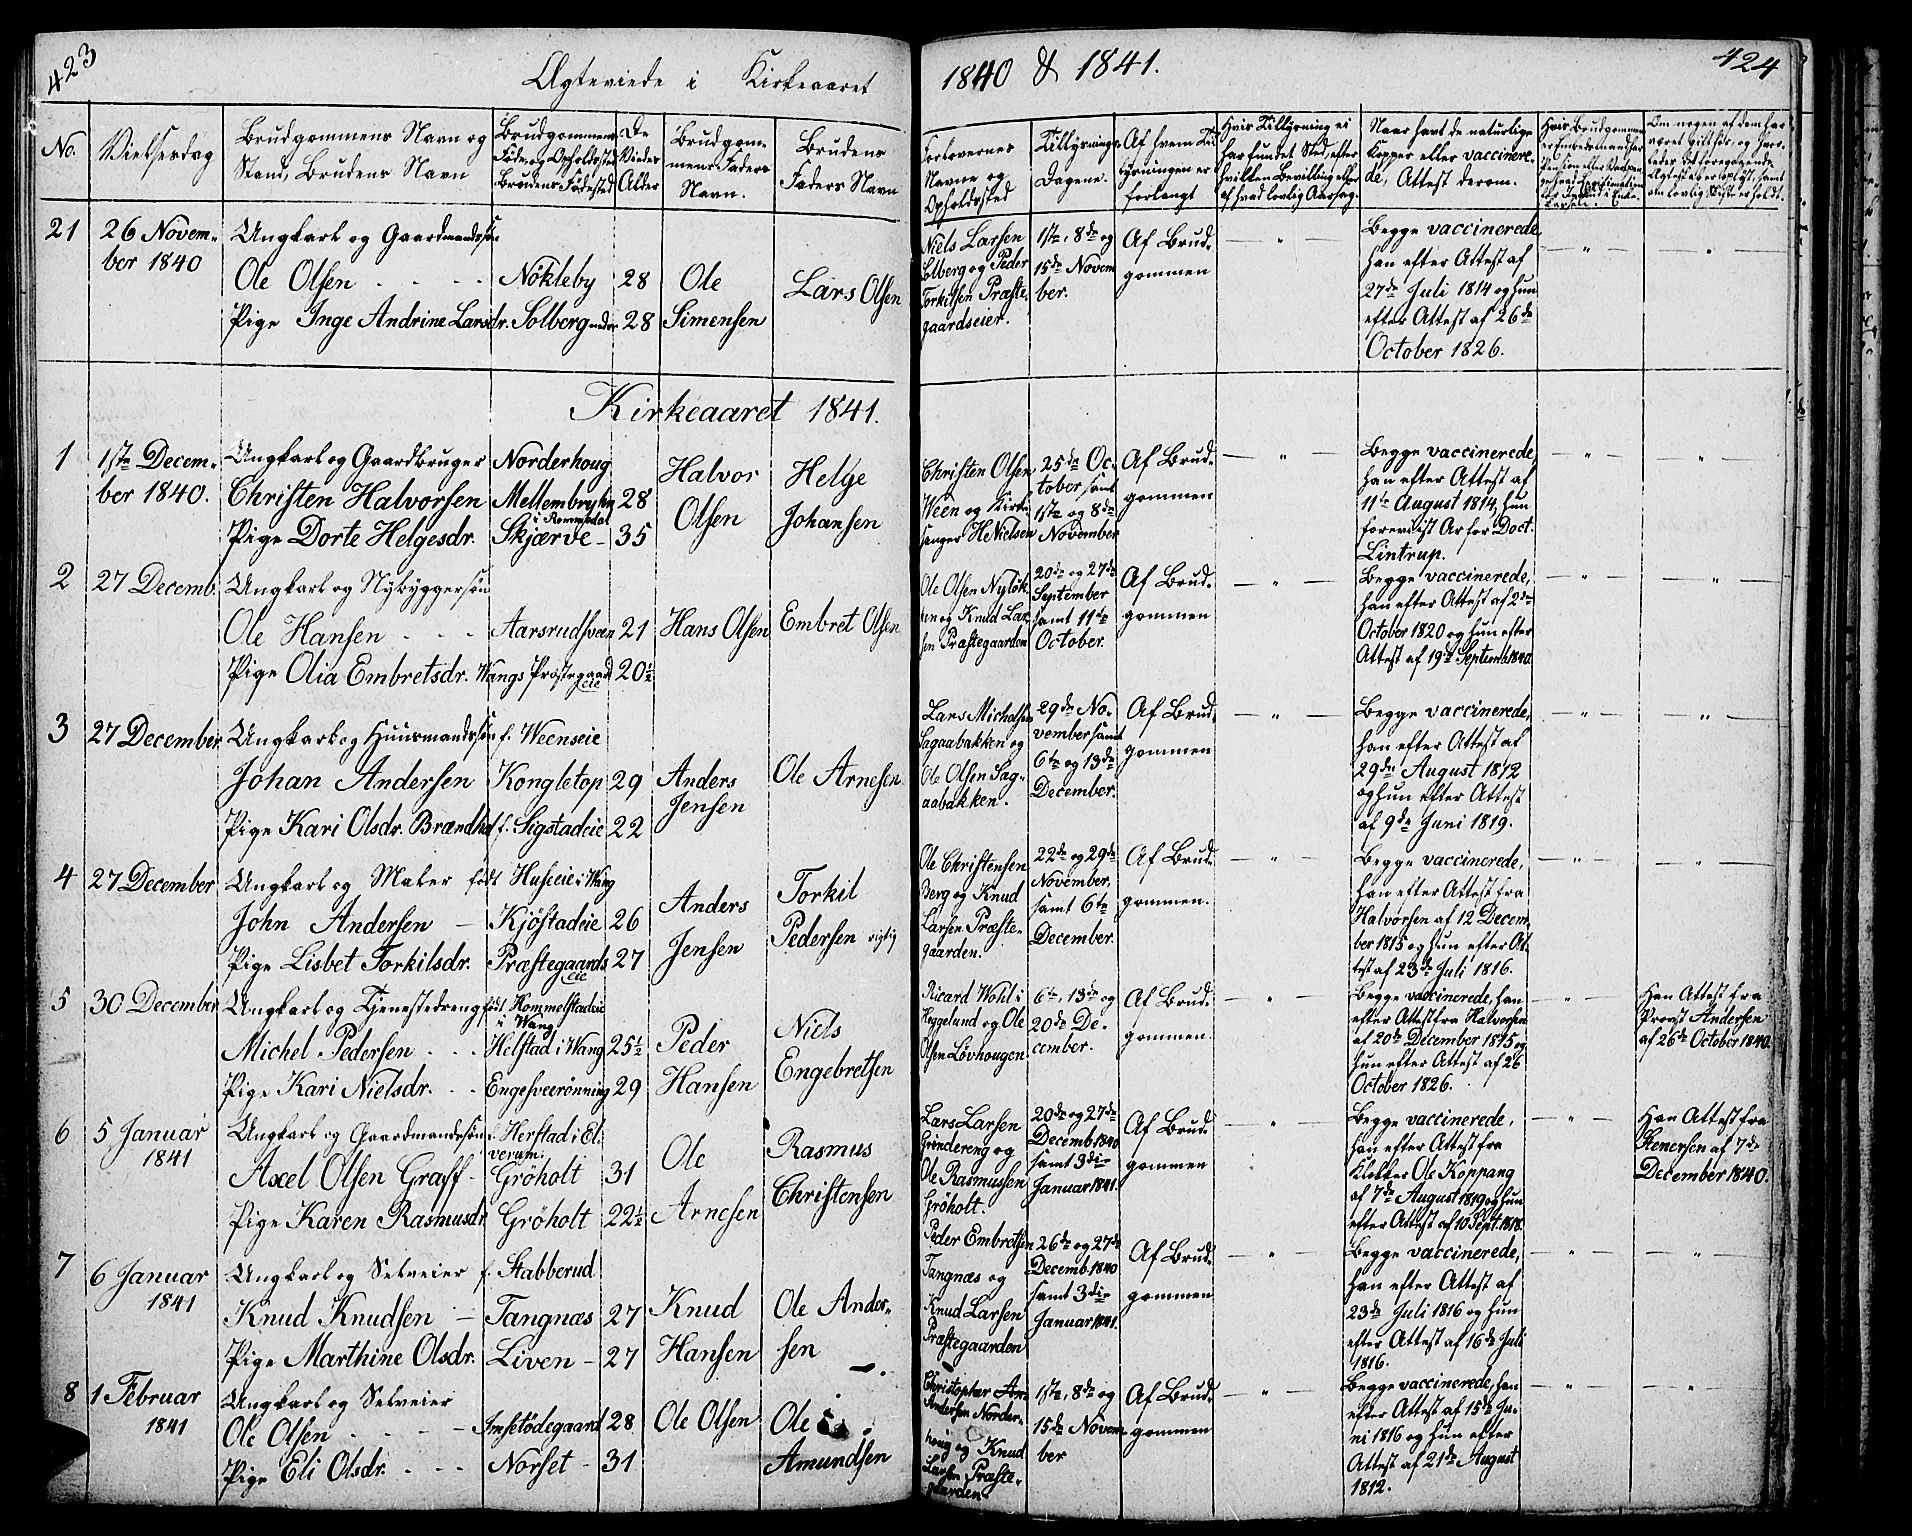 423
Ægteviede i Kirkeaaret
1840 & 1841.
424
No.
Vielsesdag
Brudgommens Navn og
Stand, Brudens Navn
Brudgommens
Føde og Opholdssted
Brudens Fødested
De
Viedes
Alder
Brudgom-
mens Faders
Navn.
Brudens
Faders Navn
Forlovernes
Navne og
Opholdssted
Tillysnings-
Dagene.
Af hvem Til
lysningen er
forlangt
Hvis Tillysning ei
har fundet Sted, efter
hvilken Bevilling eller
af hvad lovlig Aarsag.
Naar havt de naturlige
Kopper eller vaccinere-
de, Attest derom.
Hvis Brudgommen
er Embedsmand har
Om nogen af dem har
været gift før, og hvor-
ledes det foregaaende
Ægteskab er opløst, samt
om lovlig Skifte er holdt.
21
26 Novem-
ber 1840
Ungkarl og Gaardmandssøn
Ole Olsen
Pige Inge Andrine Larsdr.
Nökleby
Solberg nedre
28
28
Ole
Simensen
Lars Olsen
Niels Larsen
Solberg og Peder
Torkilsen Præste-
gaardseier.
1ste, 8de og
15de Novem
ber.
Af Brud-
gommen
Begge vaccinerede
han efter Attest af
27de Juli 1814 og hun
efter Attest af 26de
October 1826.
Kirkeaaret 1841.
1
1ste Decem-
ber 1840.
Ungkarl og Gaardbruger
Christen Halvorsen
Pige Dorte Helgesdr.
Norderhoug
Mellembryhn
i Rommedal
Skjærve
28
35
Halvor
Olsen
Helge
Johansen
Christen Olsen
Ween og Kirke
sanger H Nielsen
25de Oc-
tober samt
1ste og 8de
November
Af Brud-
gommen
Begge vaccinerede
han efter Attest af
11te August 1814, hun
foreviist Ar for Doct.
Lintrup.
2
27 Decemb.
Ungkarl og Nybyggersøn
Ole Hansen
Pige Olia Embretsdr.
Aarsrudsveen
Wangs Præstegaard
eie
21
20½
Hans Olsen
Embret Olsen
Ole Olsen Nylök
ken og Knud Lar
sen Præstegaarden
20de og 27de
September
samt 11te
October.
Af Brud-
gommen
Begge vaccinerede,
han efter Attest af 2de
October 1820 og hun efter
Attest af 19de Septemb 1840.
3
27 December
Ungkarl og Huusmandssøn
Johan Andersen
Pige Kari Olsdr. Brændhol
f. Weenseie
Kongletop
f. Sigstadeie
29
22
Anders
Jensen
Ole Arnesen
Lars Michalsen
Sagaabakken og
Ole Olsen Sag-
aabakken.
29de No-
vember samt
6te og 13de
December.
Af Brud-
gommen
Begge vaccinerede,
han efter Attest af
29de August 1812
og hun efter Attest
af 9de Juni 1819.
4
27 December
Ungkarl og Maler
John Andersen
Pige Lisbet Torkilsdr.
født Huseie i Wang
Kjöstadeie
Præstegaards
eie
26
27
Anders
Jensen
Torkil
Pedersen rigtig
Ole Christensen
Berg og Knud
Larsen Præste-
gaarden.
22de og 29de
November,
samt 6te
December.
Af Brud-
gommen.
Begge vaccinerede,
han efter Attest fra
Halvorsen af 12 Decem-
ber 1815 og hun efter At
test af 23de Juli 1816.
5
30 December
Ungkarl og Tjenestedreng
Michel Pedersen
Pige Kari Nielsdr.
født Hommelstadeie
i Wang
Helstad i Wang
Engesveerønning
25½
29
Peder
Hansen
Niels
Engebretsen
Ricard Wohl i
Heggeland og Ole
Olsen Lövhougen
6te, 13de og
20de De-
cember.
Af Brud-
gommen
Begge vaccinerede, han
efter Attest fra Halvorsen
af 20de December 1815 og
hun efter Attest af 26
October 1826.
Han Attest fra
Provst Andersen
af 26de October 1840.
6
5 Januar
1841
Ungkarl og Gaardmandssøn
Axel Olsen Graff
Pige Karen Rasmusdr
f. Herstad i El-
verum.
Gröholt
Gröholt
31
22½
Ole
Arnesen
Rasmus
Christensen
Lars Larsen
Grindereng og
Ole Rasmussen
Gröholt.
20de og 27de
Decemb. 1840
samt 3die
Januar 1841.
Af Brud-
gommen
Begge vaccinerede,
han efter Attest fra
Klokker Ole Koppang
af 7de August 1819 og hun
efter Attest af 10 Sept. 1818.
Han Attest fra
Stenersen af 7de
December 1840.
7
6 Januar
1841
Ungkarl og Selveier
Knud Knudsen
Pige Marthine Olsdr.
f. Stabberud
Tangnæs
Liven
27
27
Knud
Hansen
Ole Ander-
sen
Peder Embretsen
Tangnæs og
Knud Larsen
Præstegaarden
26de og 27de
Decemb. 1840
samt 3die
Januar 1841.
Af Brud-
gommen
Begge vaccinerede,
han efter Attest af
23de Juli 1816 og hun
efter Attest af 16de Juli
1816.
8
1 Februar
1841
Ungkarl og Selveier
Ole Olsen
Pige Eli Olsdr.
Imsetödegaard
Norset
28
31
Ole Olsen
Ole
Amundsen
Christopher An-
dersen Norder-
houg og Knud
Larsen Præste-
gaarden
1ste, 8de og
15de Novem-
ber
Af Brud-
gommen
Begge vaccinerede, han
efter Attest af 15de Ju-
ni 1816 og hun efter
Attest af 21de August
1812.